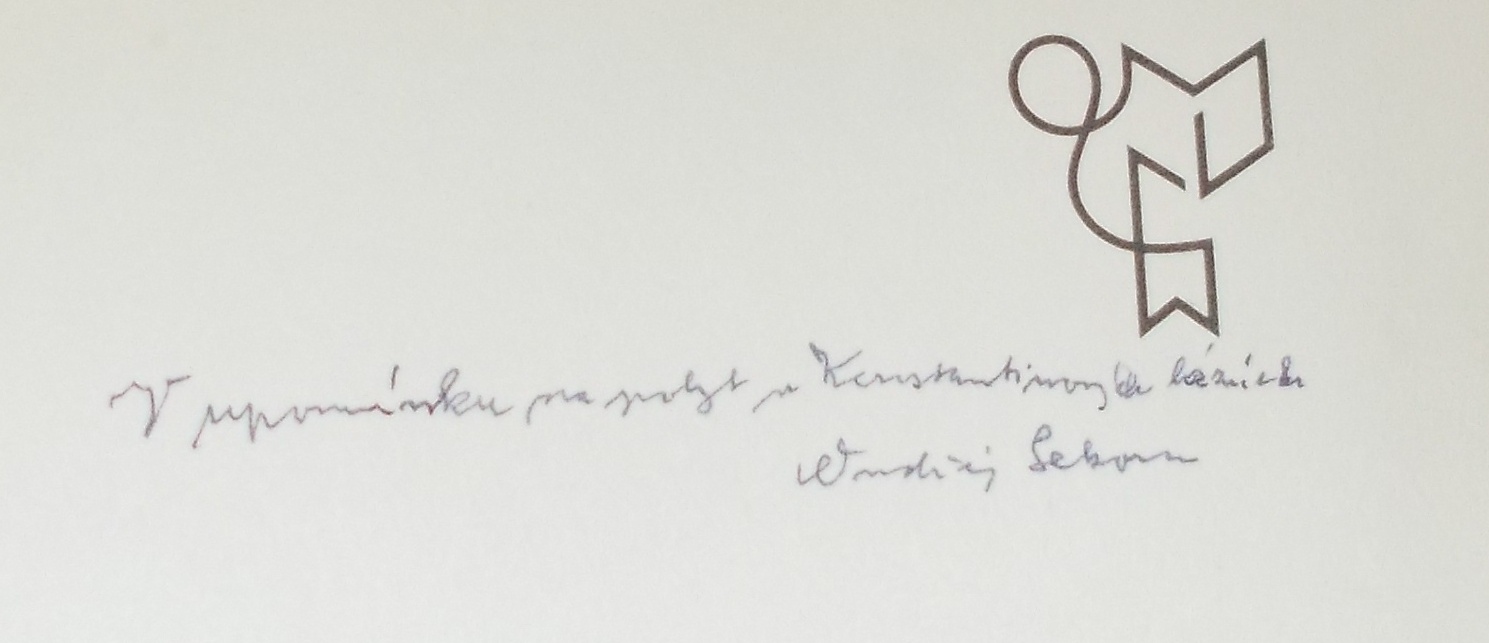 V upomínku na pobyt v Konstantinových lázních
Ondřej Sekora